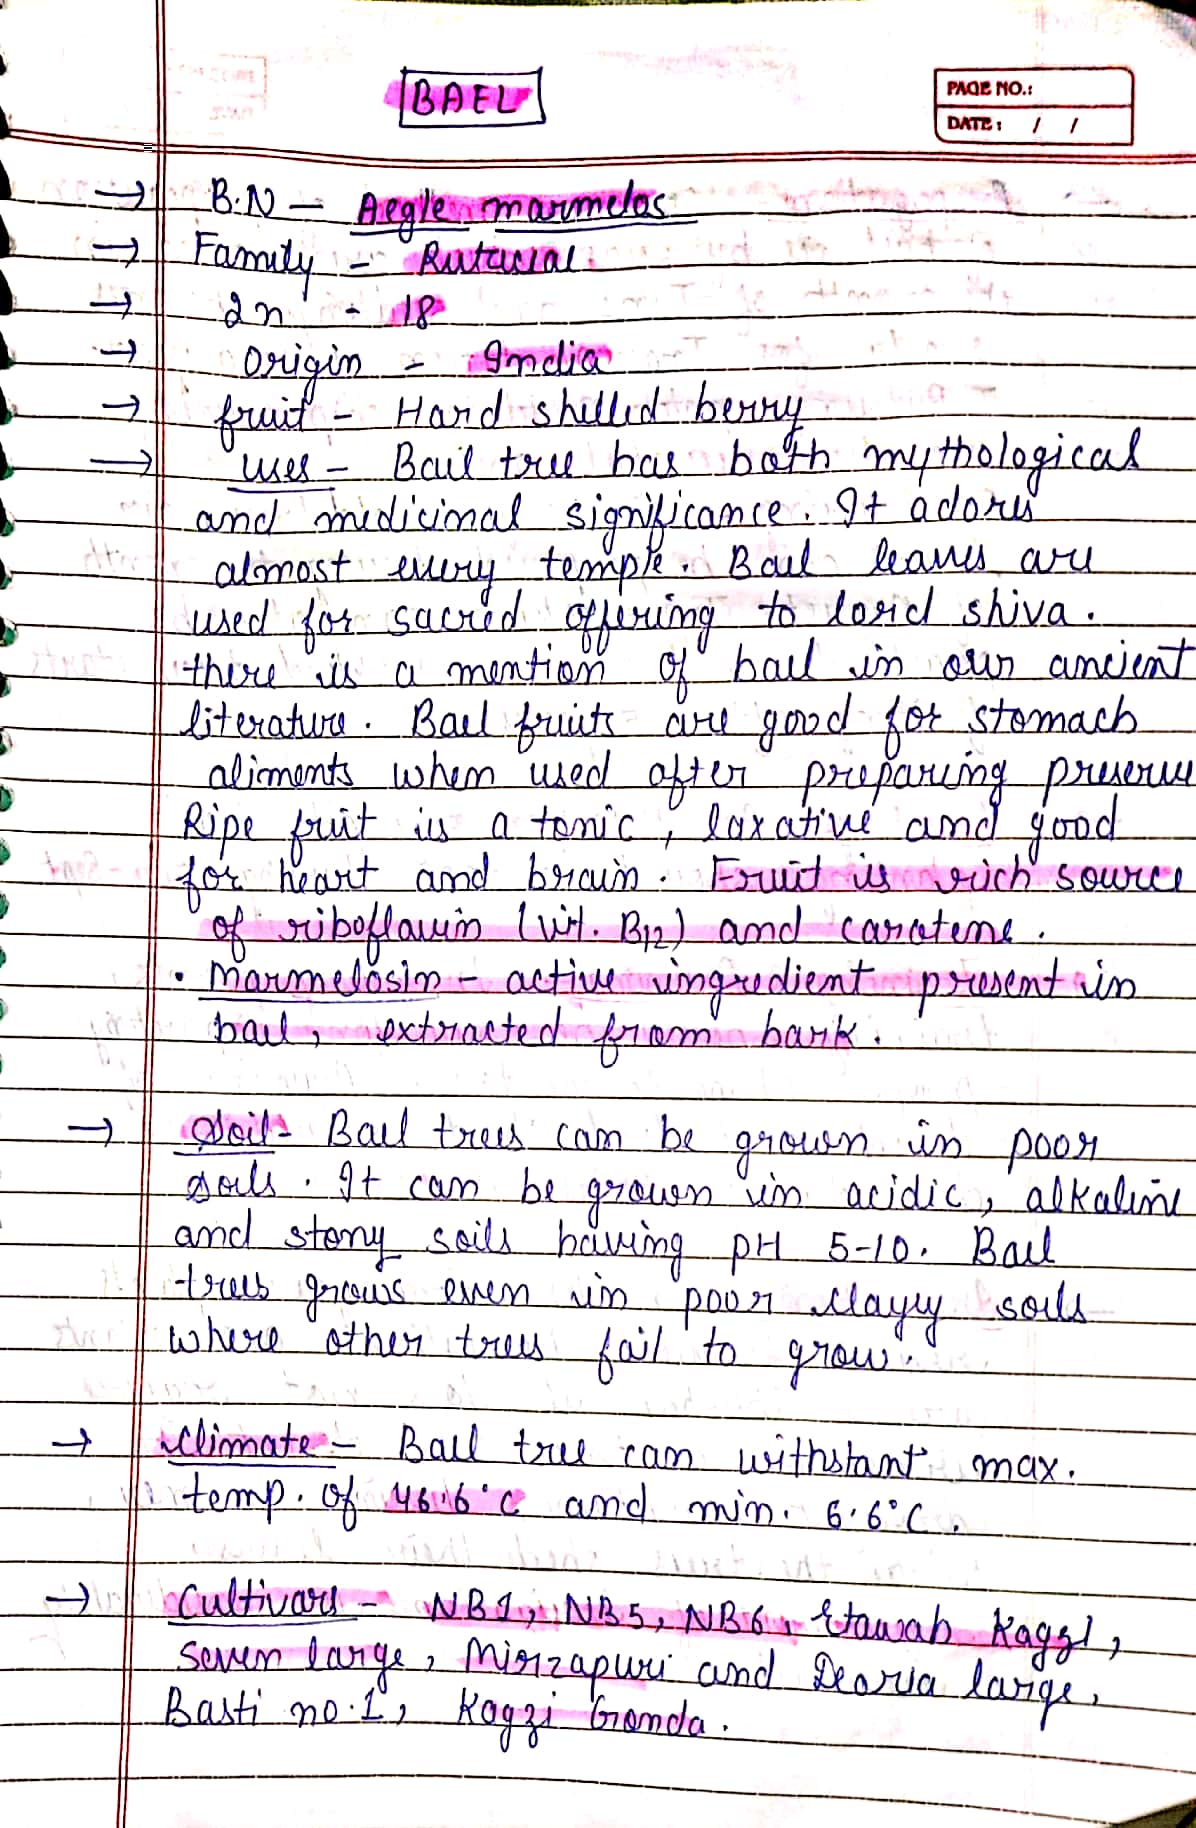 BAEL
PAGE NO.:
DATE: / /
→ B.N - Aegle marmelos
→ Family - Rutaceae
→ 2n - 18
→ Origin - India
→ fruit - Hard shelled berry
→ uses - Bael tree has both mythological
and medicinal significance. It adorns
almost every temple. Bael leaves are
used for sacred offering to lord shiva.
there is a mention of bael in our ancient
literature. Bael fruits are good for stomach
aliments when used after preparing preserve
Ripe fruit is a tonic, laxative and good
for heart and brain. Fruit is rich source
of riboflavin (vit. B12) and caratene.
• Marmelosin - active ingredient present in
bael, extracted from bark.
→ Soil - Bael trees can be grown in poor
soils. It can be grown in acidic, alkaline
and stony soils having pH 5-10. Bael
trees grows even in poor clayey soils
where other trees fail to grow.
→ Climate - Bael tree can withstant max.
temp. of 46.6°C and min. 6.6°C.
→ Cultivars - NB1, NB5, NB6, Etawah Kagzi,
Seven large, Mirzapuri and Deoria large,
Basti no.1, Kagzi Gonda.